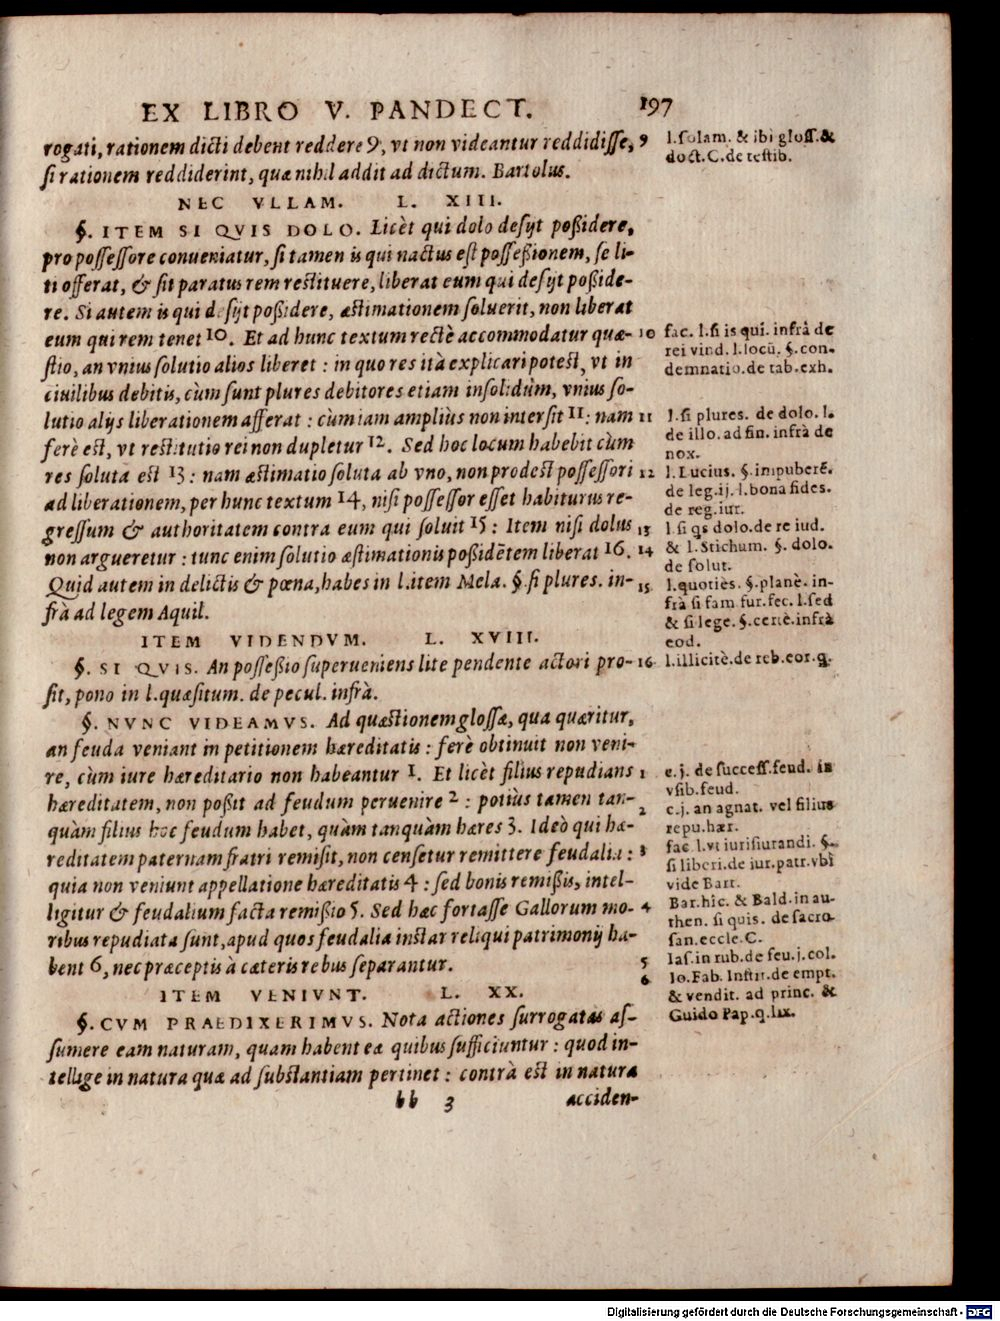 EX LIBRO V. PANDECT. 197
rogati, rationem dicti debent reddere 9, vt non videantur reddidisse,
si rationem reddiderint, quæ nihil addit ad dictum. Bartolus.
NEC VLLAM. L. XIII.
§. ITEM SI QVIS DOLO. Licèt qui dolo desijt possidere,
pro possessore conueniatur, si tamen is qui nactus est possessionem, se li-
ti offerat, & sit paratus rem restituere, liberat eum qui desijt posside-
re. Si autem is qui desijt possidere, æstimationem soluerit, non liberat
eum qui rem tenet 10. Et ad hunc textum rectè accommodatur quæ-
stio, an vnius solutio alios liberet : in quo res ità explicari potest, vt in
ciuilibus debitis, cùm sunt plures debitores etiam insolidùm, vnius so-
lutio alijs liberationem afferat : cùm iam ampliùs non intersit 11 : nam
ferè est, vt restitutio rei non dupletur 12. Sed hoc locum habebit cùm
res soluta est 13 : nam æstimatio soluta ab vno, non prodest possessori
ad liberationem, per hunc textum 14, nisi possessor esset habiturus re-
gressum & authoritatem contra eum qui soluit 15 : Item nisi dolus
non argueretur : tunc enim solutio æstimationis possidētem liberat 16.
Quid autem in delictis & pœna, habes in l.item Mela. §.si plures. in-
frà ad legem Aquil.
ITEM VIDENDVM. L. XVIII.
§. SI QVIS. An possessio superueniens lite pendente actori pro-
sit, pono in l.quæsitum. de pecul. infrà.
§. NVNC VIDEAMVS. Ad quæstionem glossæ, qua quæritur,
an feuda veniant in petitionem hæreditatis : ferè obtinuit non veni-
re, cùm iure hæreditario non habeantur 1. Et licèt filius repudians
hæreditatem, non possit ad feudum peruenire 2 : potiùs tamen tan-
quàm filius hoc feudum habet, quàm tanquàm hæres 3. Ideò qui hæ-
reditatem paternam fratri remisit, non censetur remittere feudalia :
quia non veniunt appellatione hæreditatis 4 : sed bonis remissis, intel-
ligitur & feudalium facta remissio 5. Sed hæc fortasse Gallorum mo-
ribus repudiata sunt, apud quos feudalia instar reliqui patrimonij ha-
bent 6, nec præceptis à cæteris rebus separantur.
ITEM VENIVNT. L. XX.
§. CVM PRAEDIXERIMVS. Nota actiones surrogatas as-
sumere eam naturam, quam habent eæ quibus sufficiuntur : quod in-
tellige in natura quæ ad substantiam pertinet : contrà est in natura
bb 3 acciden-
9 l.solam. & ibi gloss.&
doct.C.de testib.
10 fac. l.si is qui. infrà de
rei vind. l.locū. §.con.
demnatio.de tab.exh.
11 l.si plures. de dolo. l.
de illo. ad fin. infrà de
nox.
12 l.Lucius. §.impuberē.
de leg.ij.l.bona fides.
de reg.iur.
13 l.si qs dolo.de re iud.
14 & l.Stichum. §. dolo.
de solut.
15 l.quotiès. §.planè. in-
frà si fam fur.fec. l.sed
& si lege. §.certè.infrà
eod.
16 l.illicitè.de reb.eor.q.
1 c.j. de success.feud. in
vsib.feud.
2 c.j. an agnat. vel filius
repu.hær.
3 fac l.vt iurisiurandi. §.
si liberi.de iur.patr.vbi
vide Bart.
4 Bar.hic. & Bald.in au-
then. si quis. de sacro-
san.eccle.C.
5 Ias.in rub.de feu.j.col.
6 Io.Fab. Instit.de empt.
& vendit. ad princ. &
Guido Pap.q.lix.
Digitalisierung gefördert durch die Deutsche Forschungsgemeinschaft - DFG